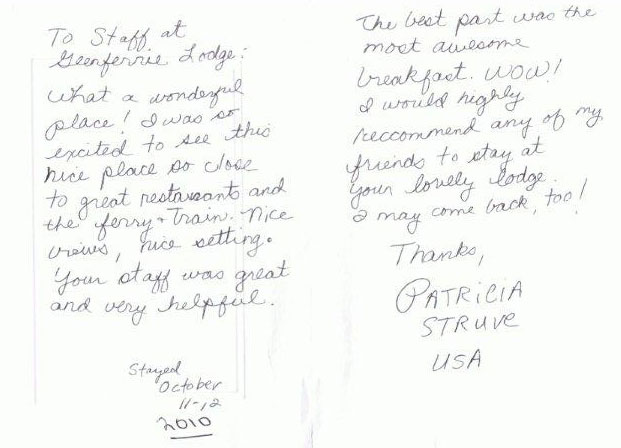 To Staff at
Glenferrie Lodge:
What a wonderful
place! I was so
excited to see this
nice place so close
to great restaurants and
the ferry + Train. Nice
views, nice setting.
Your staff was great
and very helpful.
Stayed
October
11-12
2010
The best part was the
most awesome
breakfast. WOW!
I would highly
reccommend any of my
friends to stay at
your lovely lodge.
I may come back, too!
Thanks,
PATRICIA
STRUVE
USA